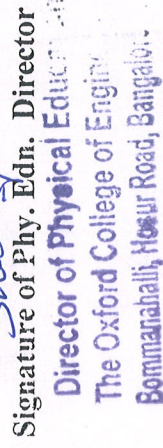 Signature of Phy. Edn. Director
Director of Physical
The Oxford College of
Bommanahalli, Hosur Road,